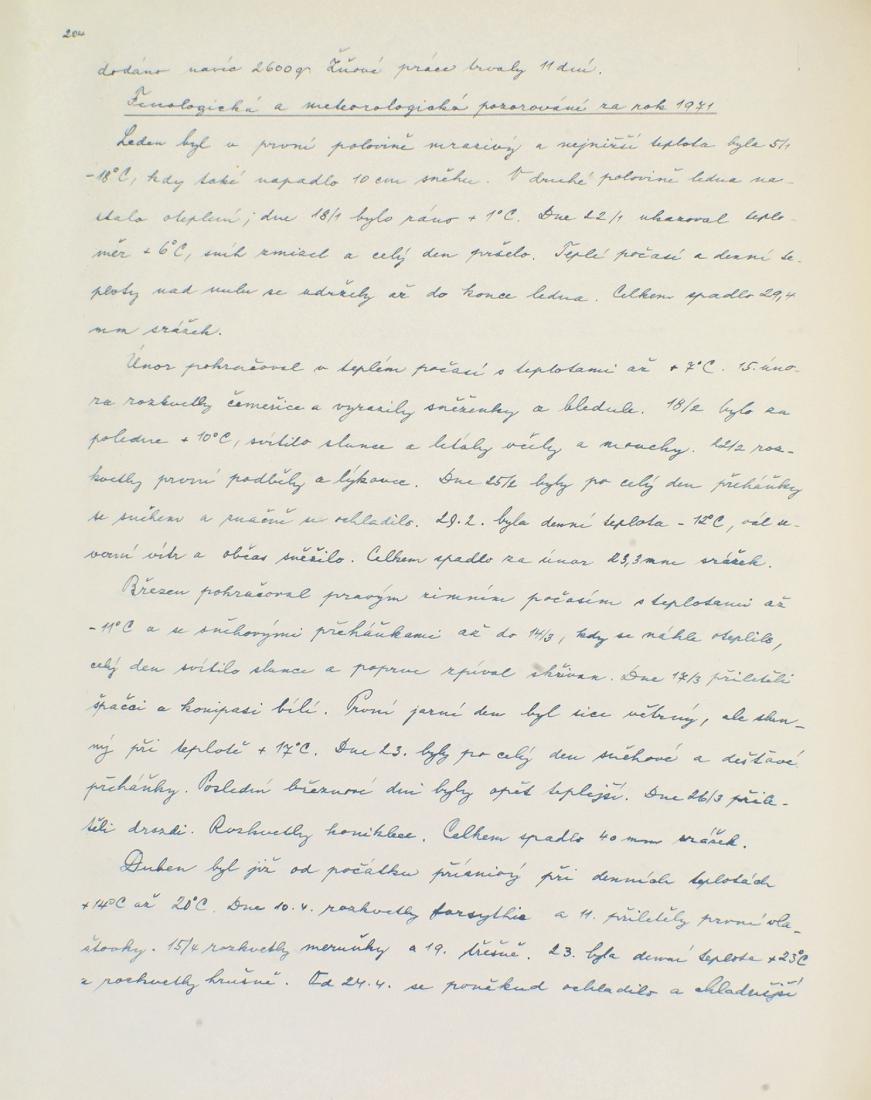 204
dodáno navíc 2600 q. Žňové práce trvaly 11 dní.
Fenologická a meteorologická pozorování za rok 1971
Leden byl v první polovině mrazivý a nejnižší teplota byla 5/1
-18°C, kdy také napadlo 10 cm sněhu. V druhé polovině ledna na-
stalo oteplení; dne 18/1 bylo ráno + 1°C. Dne 22/1 ukazoval teplo-
měr + 6°C, sníh zmizel a celý den pršelo. Teplé počasí a denní te-
ploty nad nulu se udržely až do konce ledna. Celkem spadlo 29,4
mm srážek.
Únor pokračoval v teplém počasí s teplotami až + 7°C. 15. úno-
ra rozkvetly čemeřice a vyrazily sněženky a bledule. 18/2 bylo za
poledne + 10°C, svítilo slunce a lítaly včely a mouchy. 22/2 roz-
kvetly první podběly a lýkovce. Dne 25/2 byly po celý den přeháňky
se sněhem a značně se ochladilo. 29.2. byla denní teplota - 12°C, vál se-
verní vítr a občas sněžilo. Celkem spadlo za únor 23,3 mm srážek.
Březen pokračoval pravým zimním počasím s teplotami až
-11°C a se sněhovými přeháňkami až do 14/3, kdy se náhle oteplilo,
celý den svítilo slunce a poprve zpíval skřivan. Dne 17/3 přiletěli
špačci a konipasi bílí. První jarní den byl sice větrný, ale slun-
ný při teplotě + 17°C. Dne 23. byly po celý den sněhové a dešťové
přeháňky. Poslední březnové dni byly opět teplejší. Dne 26/3 přile-
těli drozdi. Rozkvetly koniklece. Celkem spadlo 40 mm srážek.
Duben byl již od počátku příznivý při denních teplotách
+14°C až 20°C. Dne 10.4. rozkvetly forsythie a 11. přiletěly první vla-
štovky. 15/4 rozkvetly meruňky a 19. třešně. 23. byla denní teplota +23°C
a rozkvetly hrušně. Od 24.4. se poněkud ochladilo a chladnější